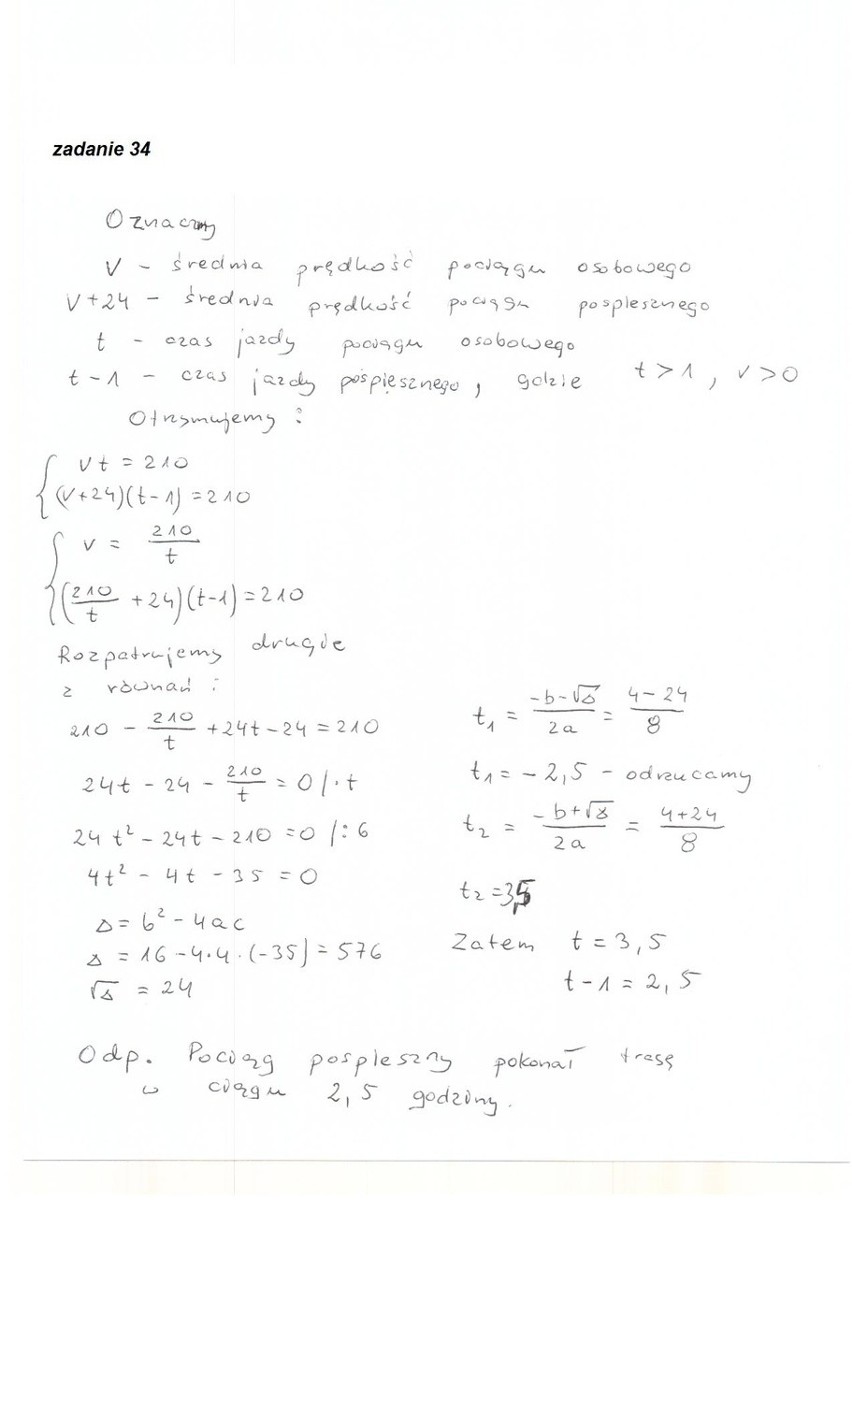 zadanie 34
Oznaczmy
V - średnia prędkość pociągu osobowego
V+24 - średnia prędkość pociągu pospiesznego
t - czas jazdy pociągu osobowego
t-1 - czas jazdy pospiesznego, gdzie t>1, v>0
Otrzymujemy:
{ Vt = 210
(V+24)(t-1) = 210
{ V = 210/t
(210/t + 24)(t-1) = 210
Rozpatrujemy drugie
z równań:
210 - 210/t + 24t - 24 = 210
24t - 24 - 210/t = 0 /·t
24t² - 24t - 210 = 0 /:6
4t² - 4t - 35 = 0
Δ = b² - 4ac
Δ = 16 - 4·4·(-35) = 576
√Δ = 24
t₁ = (-b-√Δ)/2a = (4-24)/8
t₁ = -2,5 - odrzucamy
t₂ = (-b+√Δ)/2a = (4+24)/8
t₂ = 3,5
Zatem t = 3,5
t-1 = 2,5
Odp. Pociąg pospieszny pokonał trasę
w ciągu 2,5 godziny.